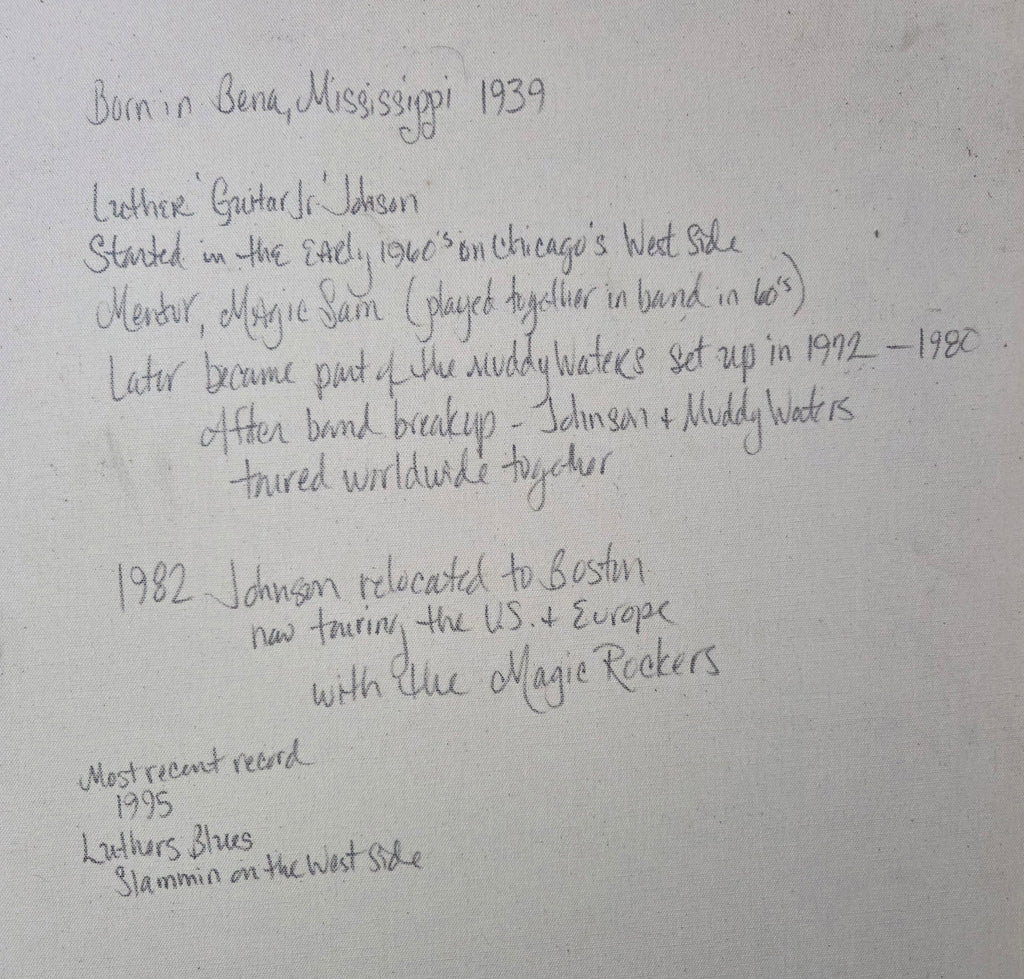 Born in Bena, Mississippi 1939
Luther 'Guitar Jr.' Johson
Started in the Early 1960's on Chicago's West Side
Mentor, Magic Sam (played together in band in 60's)
Later became part of the Muddy Waters set up in 1972 - 1980
After band breakup - Johnson + Muddy Waters
toured worldwide together
1982 Johnson relocated to Boston
now touring the U.S. + Europe
with the Magic Rockers
Most recent record
1995
Luthers Blues
Slammin on the West Side